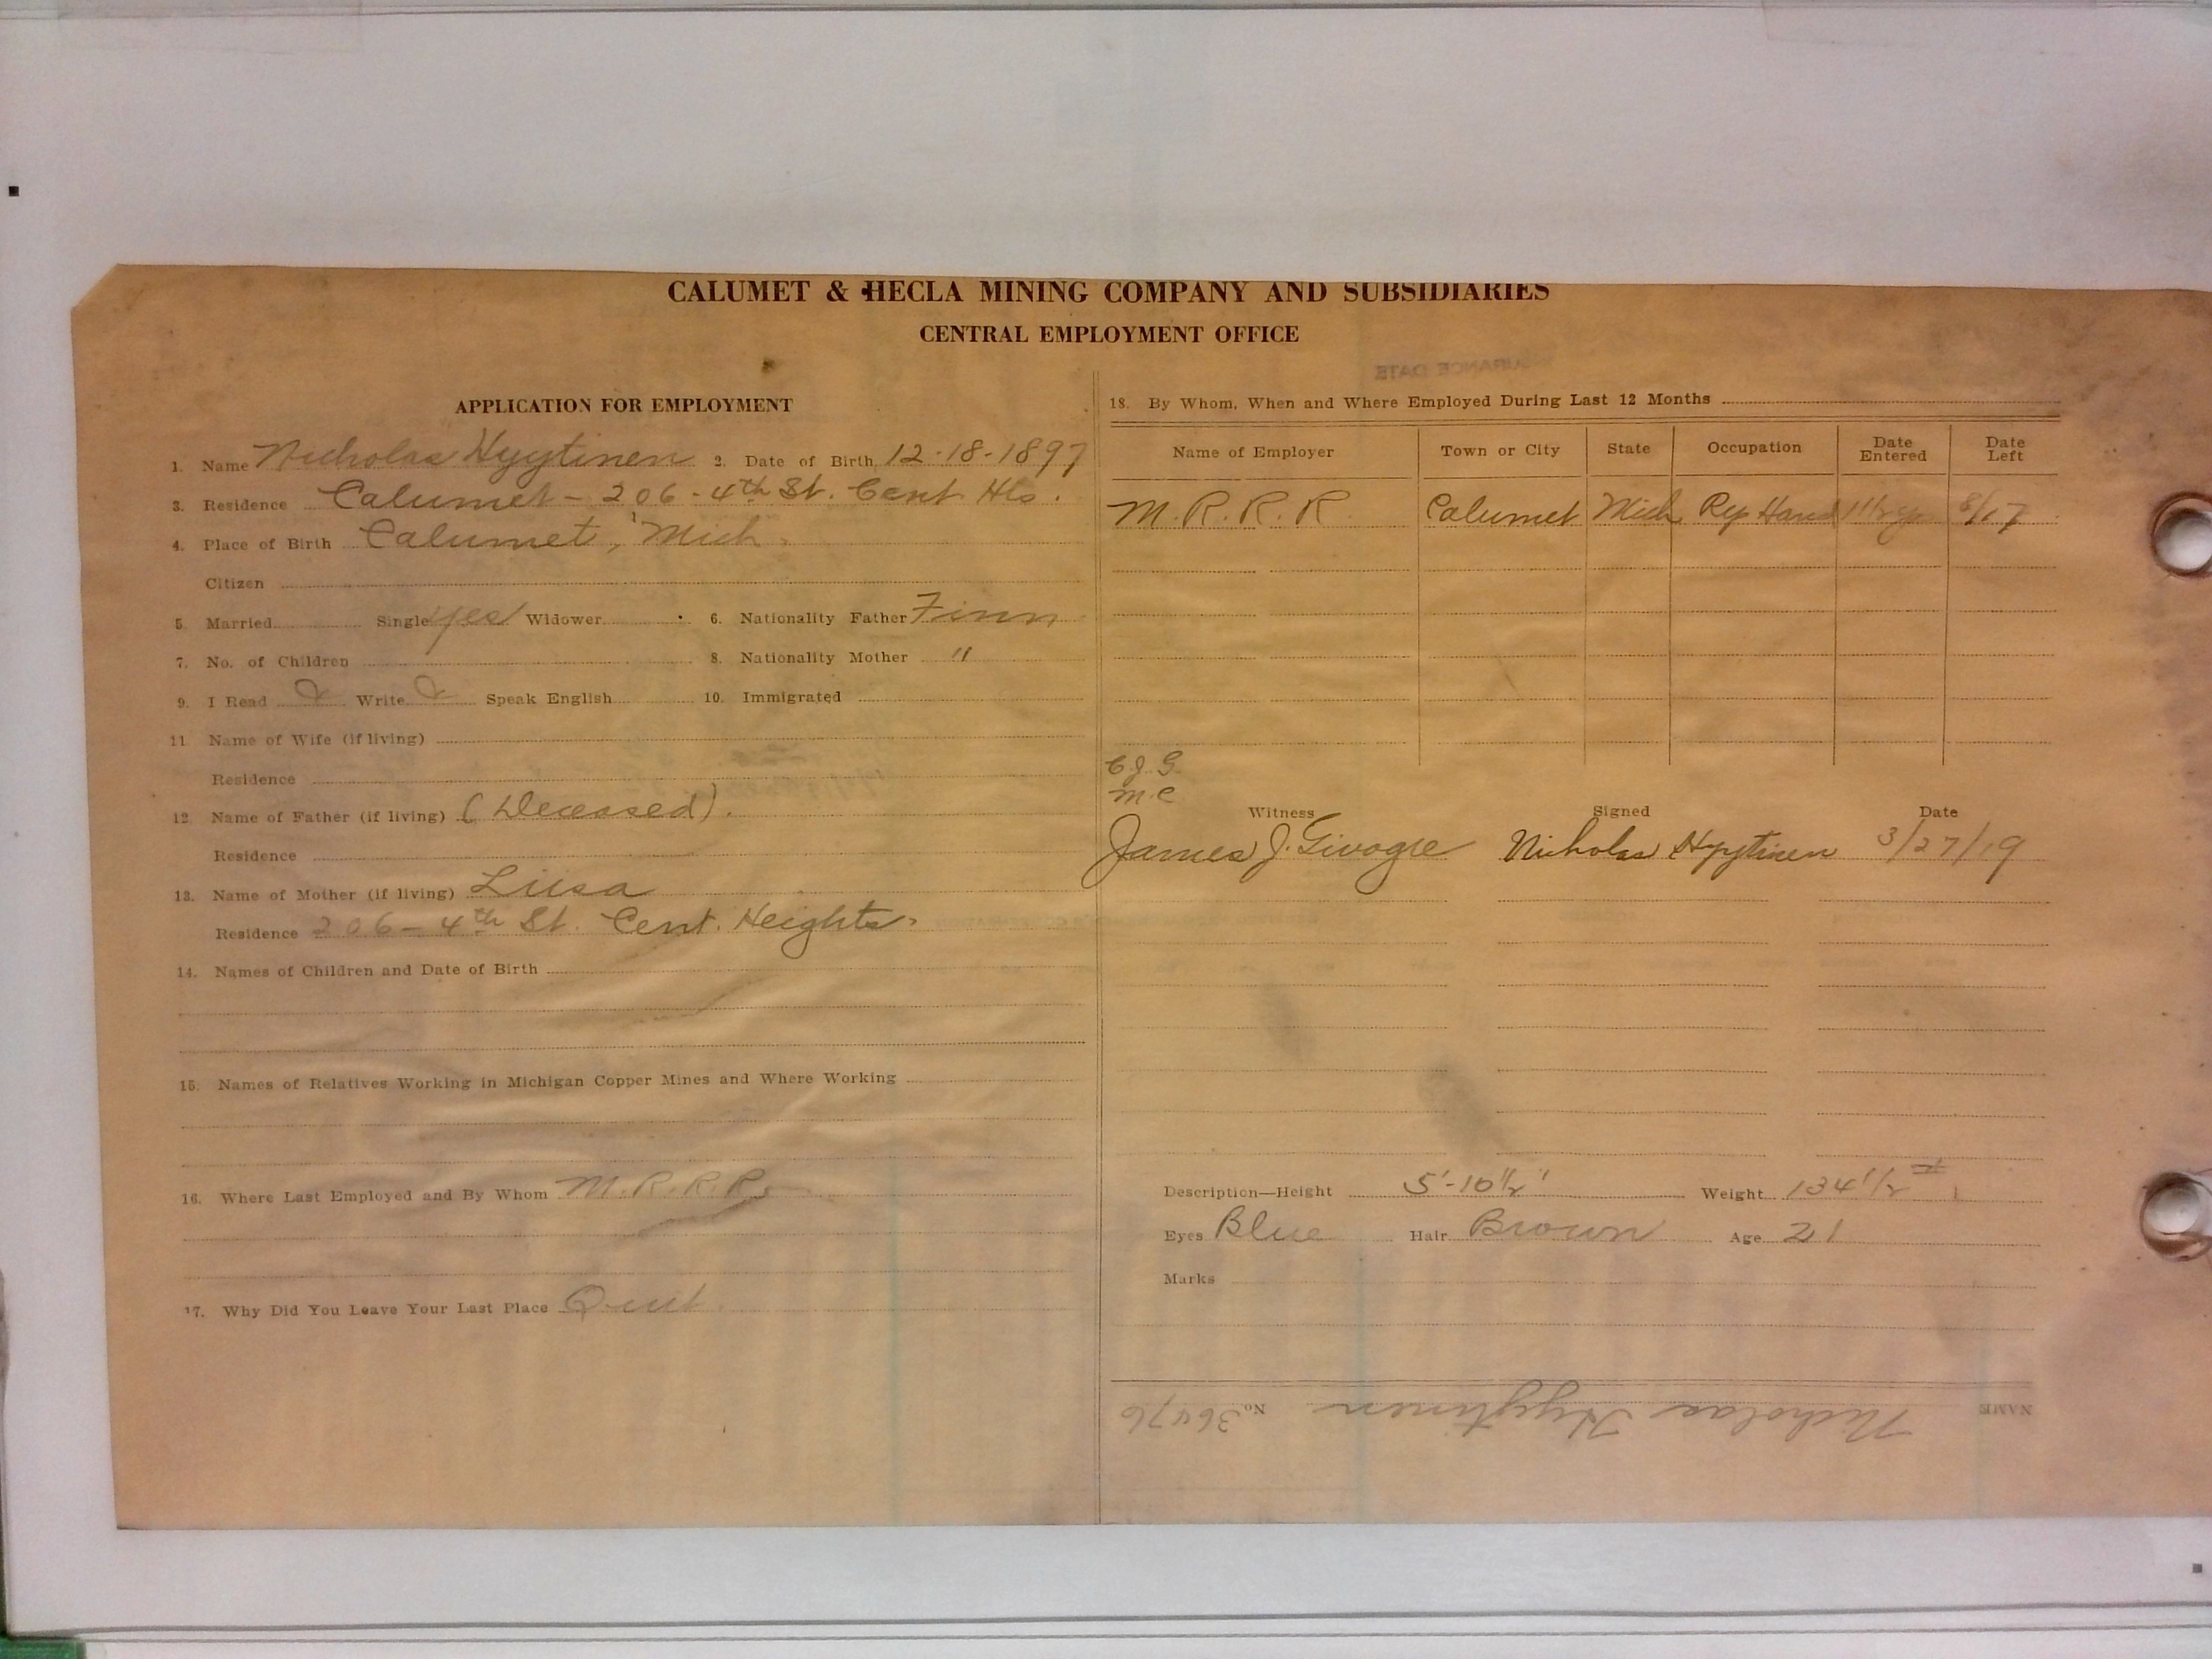 CALUMET & HECLA MINING COMPANY AND SUBSIDIARIES
CENTRAL EMPLOYMENT OFFICE
APPLICATION FOR EMPLOYMENT
1. Name Nicholas Hyytinen 2. Date of Birth 12-18-1897
3. Residence Calumet - 206 - 4th St. Cent Hts.
4. Place of Birth Calumet, Mich.
Citizen
5. Married Single yes Widower 6. Nationality Father Finn
7. No. of Children 8. Nationality Mother "
9. I Read Write Speak English 10. Immigrated
11. Name of Wife (if living)
Residence
12. Name of Father (if living) (Deceased).
Residence
13. Name of Mother (if living) Liisa
Residence 206 - 4th St. Cent. Heights.
14. Names of Children and Date of Birth
15. Names of Relatives Working in Michigan Copper Mines and Where Working
16. Where Last Employed and By Whom M.R.R.R.
17. Why Did You Leave Your Last Place Quit
18. By Whom, When and Where Employed During Last 12 Months
Name of Employer Town or City State Occupation Date Entered Date Left
M.R.R.R. Calumet Mich Hand 8/17
C.J.G.
M.C
Witness Signed Date
James J. Nicholas Hyytinen 3/27/19
Description—Height 5'-10 1/2" Weight 134 1/2 #
Eyes Blue Hair Brown Age 21
Marks
NAME Nicholas Hyytinen No. 36476
URANCE DATE